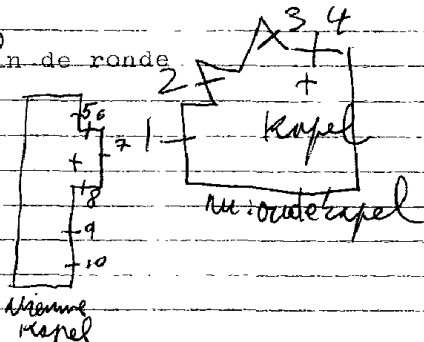 n de ronde
3 4
2
1
Kapel
nu: oude kapel
5 6
7
8
9
10
Nieuwe
Kapel